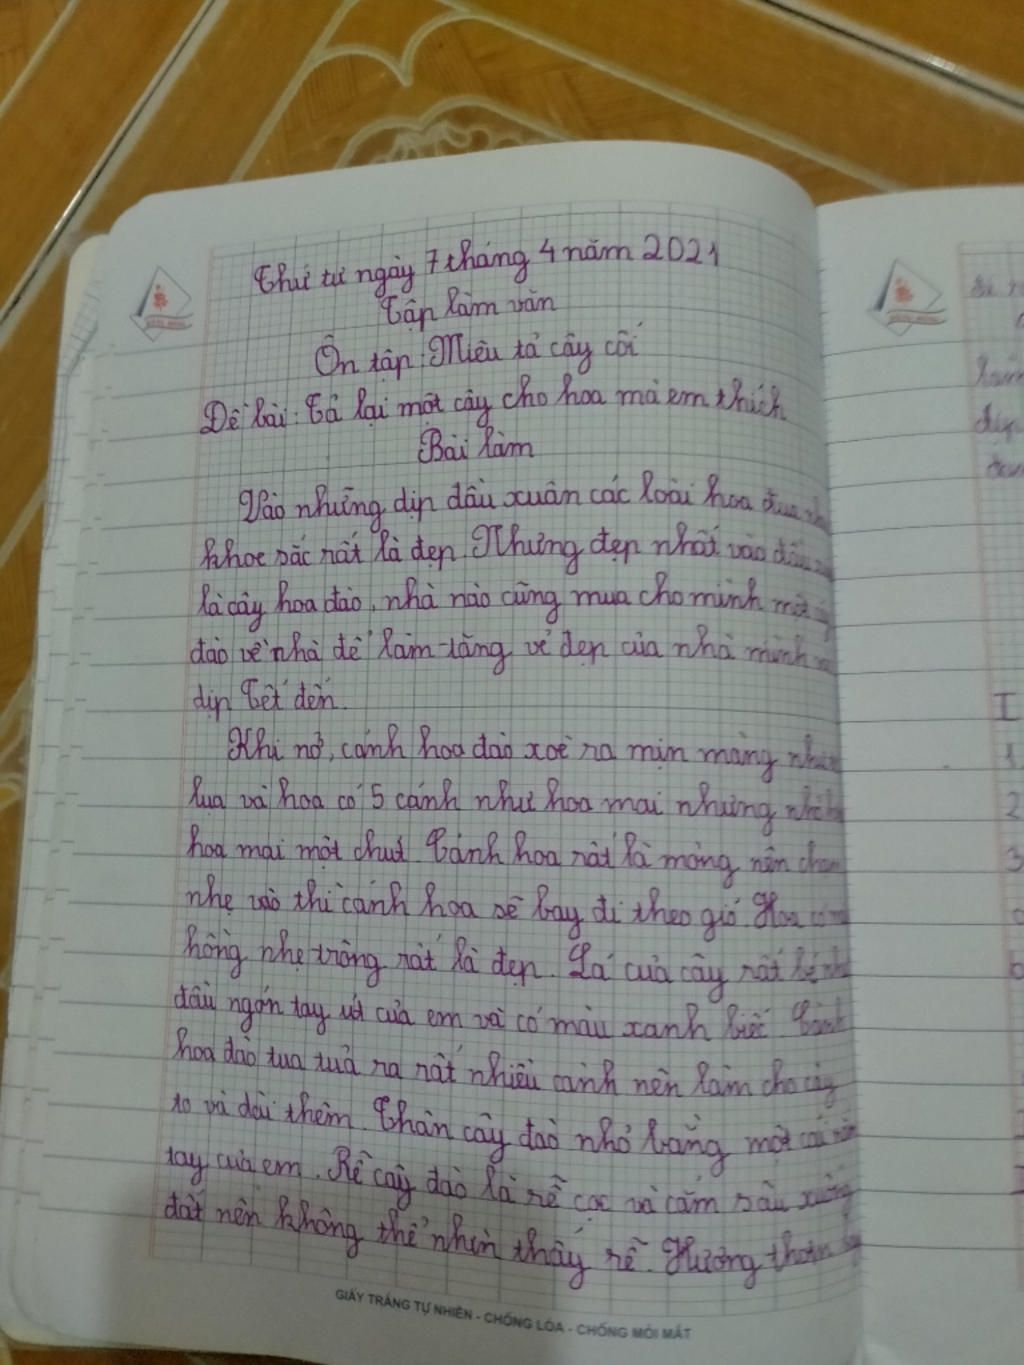 Thứ tư ngày 7 tháng 4 năm 2021
Tập làm văn
Ôn tập: Miêu tả cây cối
Đề bài: Tả lại một cây cho hoa mà em thích
Bài làm
Vào những dịp đầu xuân các loài hoa đua
khoe sắc rất là đẹp. Nhưng đẹp nhất vào đầu
là cây hoa đào, nhà nào cũng mua cho mình một
đào về nhà để làm tăng vẻ đẹp của nhà mình
dịp Tết đến.
Khi nở, cánh hoa đào xoè ra mịn màng như
lụa và hoa có 5 cánh như hoa mai nhưng
hoa mai một chút. Cánh hoa rất là mỏng nên chạm
nhẹ vào thì cánh hoa sẽ bay đi theo gió. Hoa có
hồng nhẹ trông rất là đẹp. Lá của cây rất
đầu ngón tay út của em và có màu xanh biếc. Cành
hoa đào tua tủa ra rất nhiều cành nên làm cho cây
to và dài thêm. Thân cây đào nhỏ bằng một cái
tay của em. Rễ cây đào là rễ cọc và cắm sâu xuống
đất nên không thể nhìn thấy rễ. Hương thơm
GIẤY TRẮNG TỰ NHIÊN - CHỐNG LÓA - CHỐNG MỎI MẮT
I
1
2
3